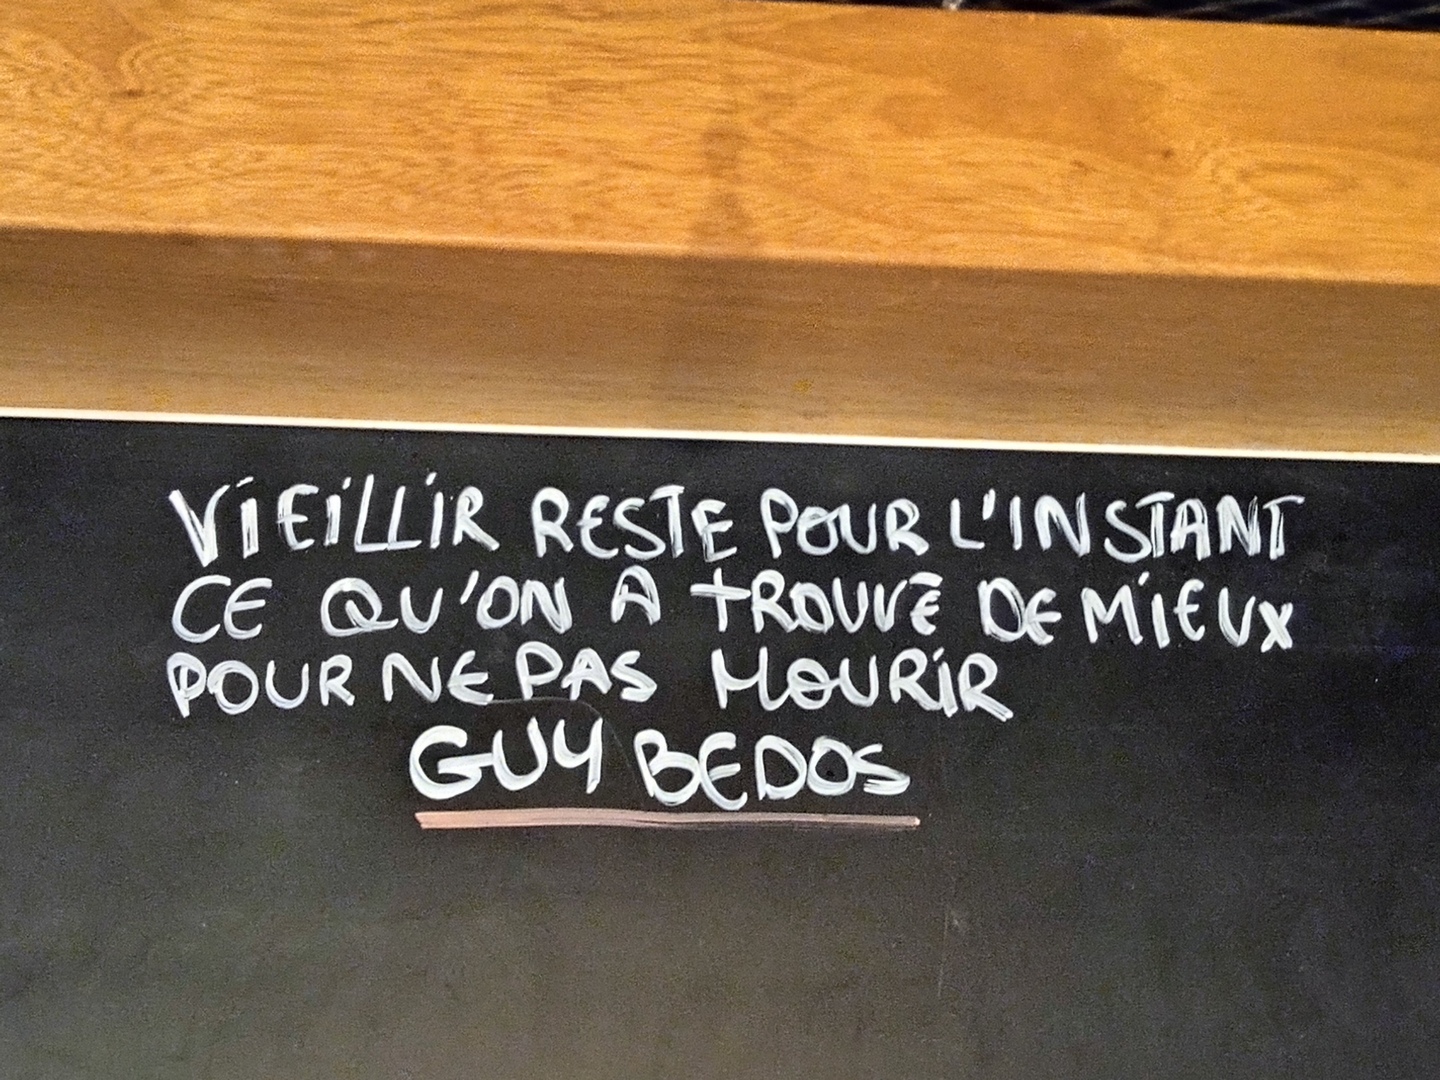 VIEILLIR RESTE POUR L'INSTANT
CE QU'ON A TROUVÉ DE MIEUX
POUR NE PAS MOURIR
GUY BEDOS